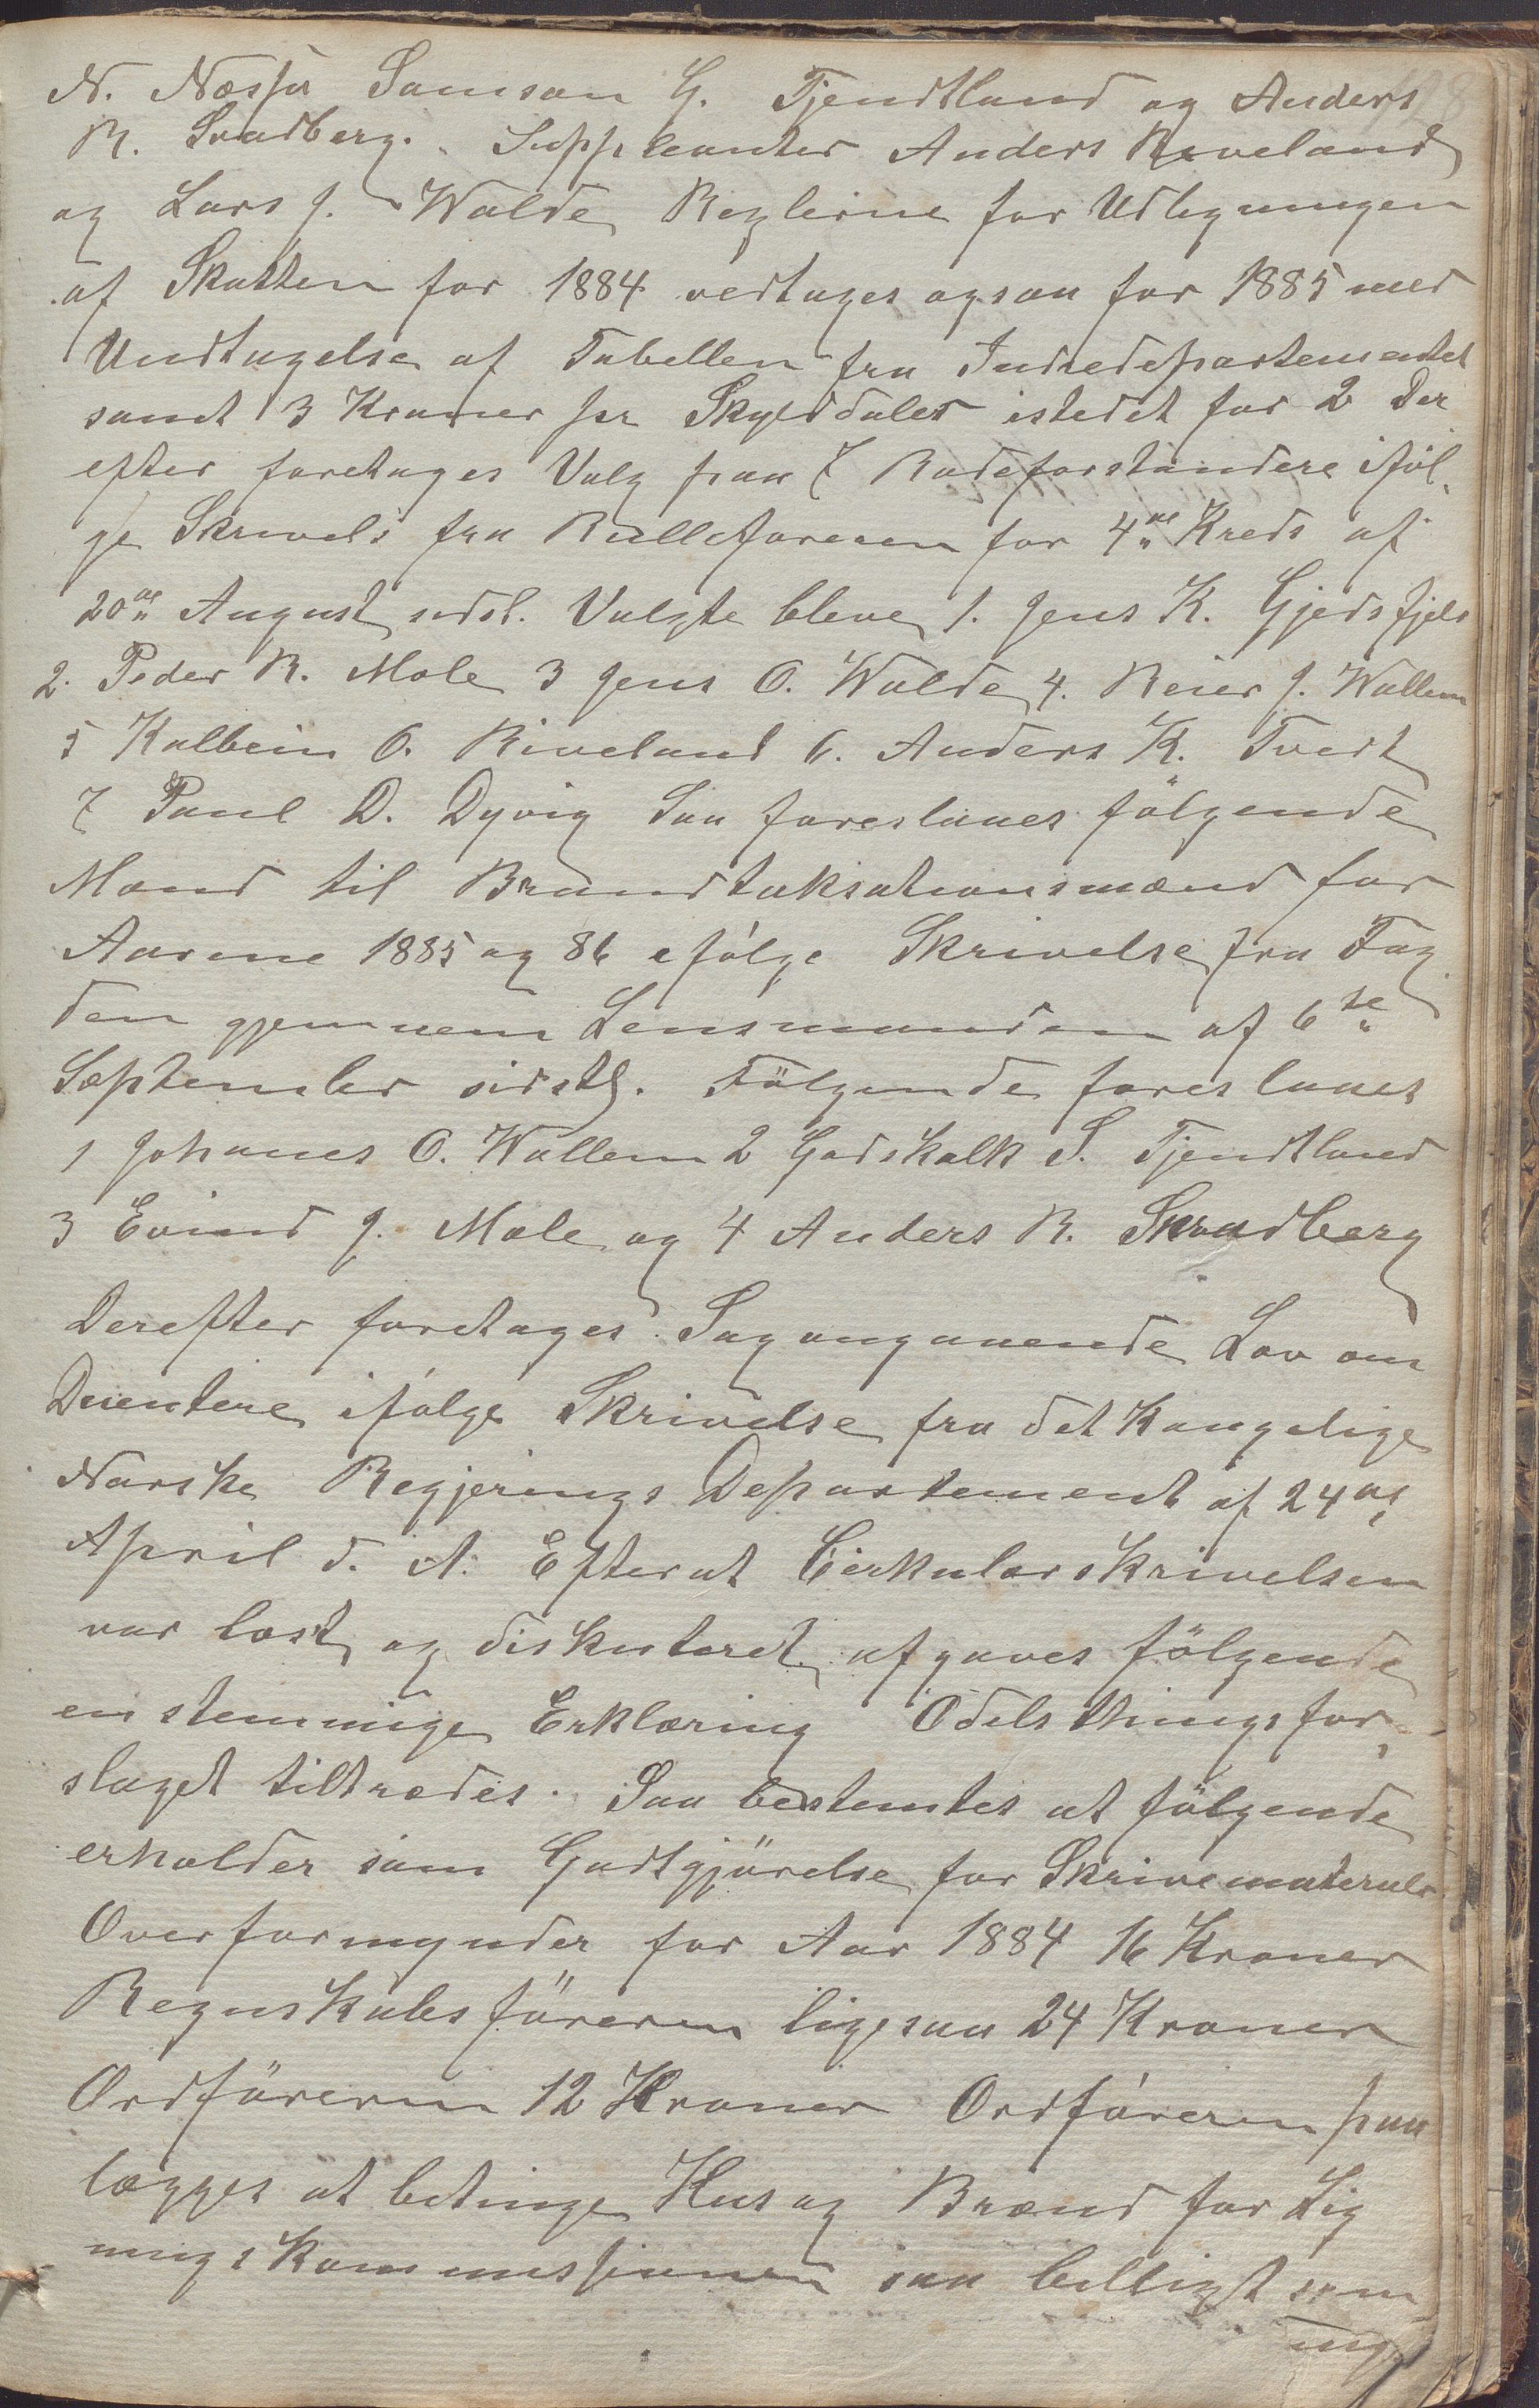 N. Næssa Samson G. Tjendtland og Anders
R. Svadberg. Suppleanter Anders Røveland
og Lars J. Walde Reglerne for Udligningen
af Skatten for 1884 vedtages ogsaa for 1885 med
Undtagelse af Tabellen fra Indredepartementet
samt 3 Kroner pr Skylddaler istedet for 2 Der
efter foretages Valg paa 7 Rodeforstandere iføl„
ge Skrivels fra Rulleføreren for 4de Kreds af
20de August sidsl. Valgte bleve 1. Jens K. Gjedsfjeld
2. Peder R. Mæle 3 Jens O. Walde 4. Reier J. Wallem
5 Kolbein O. Riveland 6. Anders K. Tvedt
7 Paul D. Dyvig Saa foreslaaes følgende
Mænd til Brandtaksationsmænd for
Aarene 1885 og 86 efølge Skrivelse fra Fog
den gjennem Lensmanden af 6te
September sidstl. Følgende foreslaaes
1 Johanes O. Wallem 2 Godskalk S. Tjendtland
3 Evind J. Mæle og 4 Anders R. Svadberg
Derefter foretages Sag angaaende Lov om
Døientere ifølge Skrivelse fra det Kongelige
Norske Regjerings Departement af 24de
April d. A. Efterat Cirkulærskrivelsen
var læst og diskuteret afgaves følgende
enstemmige Erklæring Odelsthingsfor„
slaget tiltrædes. Saa bestemtes at følgende
erholder som Godtgjörelse for Skrivematerialer
Overformynder for Aar 1884 16 Kroner
Regnskabsföreren ligesaa 24 Kroner
Ordföreren 12 Kroner Ordföreren paa
lægges at betinge Hus og Brænd for Lig
ningskommissionen saa billigst som
mg.